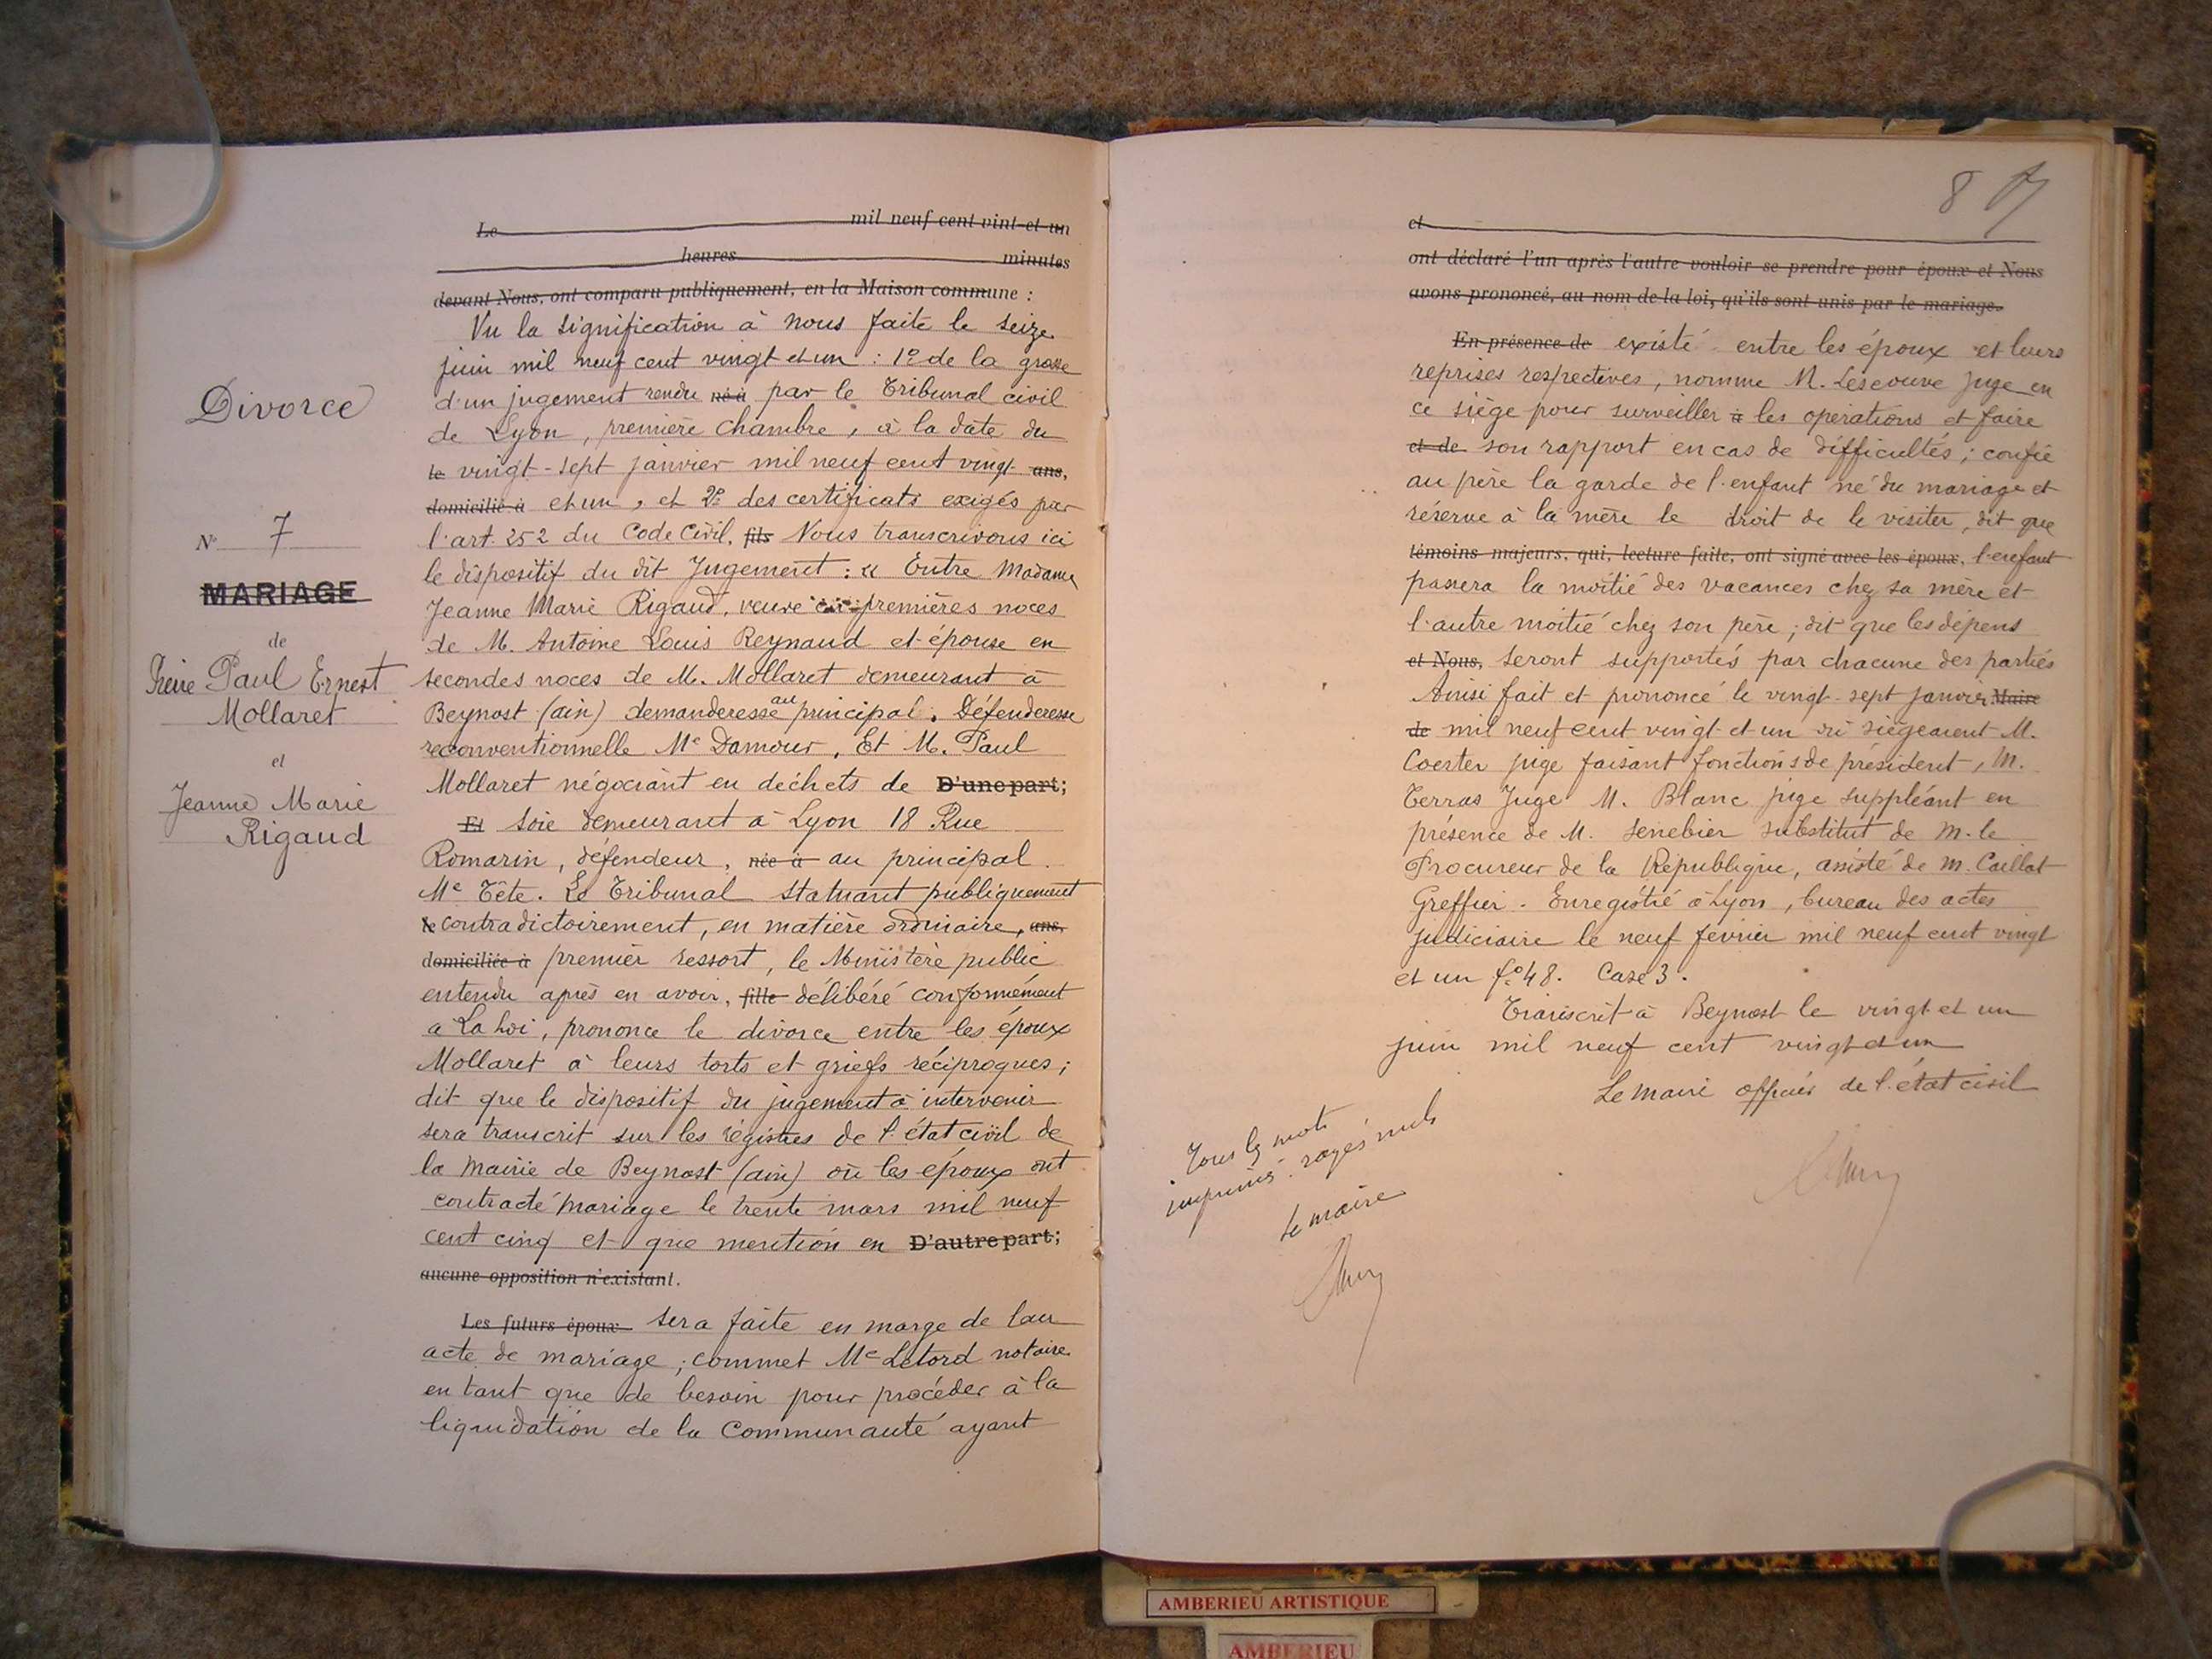 Divorce
N° 7
MARIAGE
de
Paul Ernest
Mollaret
et
Jeanne Marie
Rigaud
Le mil neuf cent vint-et-un
heures minutes
devant Nous, ont comparu publiquement, en la Maison commune :
Vu la signification à nous faite le seize
juin mil neuf cent vingt et un : 1° de la grosse
d'un jugement rendu né à par le Tribunal civil
de Lyon, première chambre, à la date du
le vingt-sept janvier mil neuf cent vingt ans,
domicilié à et un, et 2° des certificats exigés par
l'art. 252 du Code Civil, fils Nous transcrivons ici
le dispositif du dit Jugement : « Entre Madame
Jeanne Marie Rigaud, veuve en premières noces
de M. Antoine Louis Reynaud et épouse en
secondes noces de M. Mollaret demeurant à
Beynost (ain) demanderesse au principal. Défenderesse
reconventionnelle Me Damour, Et M. Paul
Mollaret négociant en déchets de D'une part;
Et soie demeurant à Lyon 18 Rue
Romarin, défendeur, née à au principal.
Me Tête. Le Tribunal statuant publiquement
le contradictoirement, en matière ordinaire, ans,
domiciliée à premier ressort, le Ministère public
entendu après en avoir, fille délibéré conformément
à La Loi, prononce le divorce entre les époux
Mollaret à leurs torts et griefs réciproques;
dit que le dispositif du jugement à intervenir
sera transcrit sur les registres de l'état civil de
la mairie de Beynost (ain) où les époux ont
contracté mariage le trente mars mil neuf
cent cinq et que mention en D'autre part;
aucune opposition n'existant.
Les futurs époux sera faite en marge de leur
acte de mariage; commet Me Letord notaire
en tant que de besoin pour procéder à la
liquidation de la Communauté ayant
8
et
ont déclaré l'un après l'autre vouloir se prendre pour époux et Nous
avons prononcé, au nom de la loi, qu'ils sont unis par le mariage.
En présence de existé entre les époux et leurs
reprises respectives, nomme M. Lescouve juge en
ce siège pour surveiller à les opérations et faire
et de son rapport en cas de difficultés; confie
au père la garde de l'enfant né du mariage et
réserve à la mère le droit de le visiter, dit que
témoins majeurs, qui, lecture faite, ont signé avec les époux, l'enfant
passera la moitié des vacances chez sa mère et
l'autre moitié chez son père; dit que les dépens
et Nous, seront supportés par chacune des parties
Ainsi fait et prononcé le vingt-sept janvier Maire
de mil neuf cent vingt et un où siégeaient M.
Coester juge faisant fonctions de président, M.
Terras Juge M. Blanc juge suppléant en
présence de M. Senebier substitut de M. le
Procureur de la République, assisté de M. Caillat
Greffier. Enregistré à Lyon, bureau des actes
judiciaire le neuf février mil neuf cent vingt
et un f° 48. Case 3.
Transcrit à Beynost le vingt et un
juin mil neuf cent vingt et un
Le maire officier de l'état civil
Tous les mots
imprimés rayés nuls
Le maire
AMBERIEU ARTISTIQUE
AMBERIEU